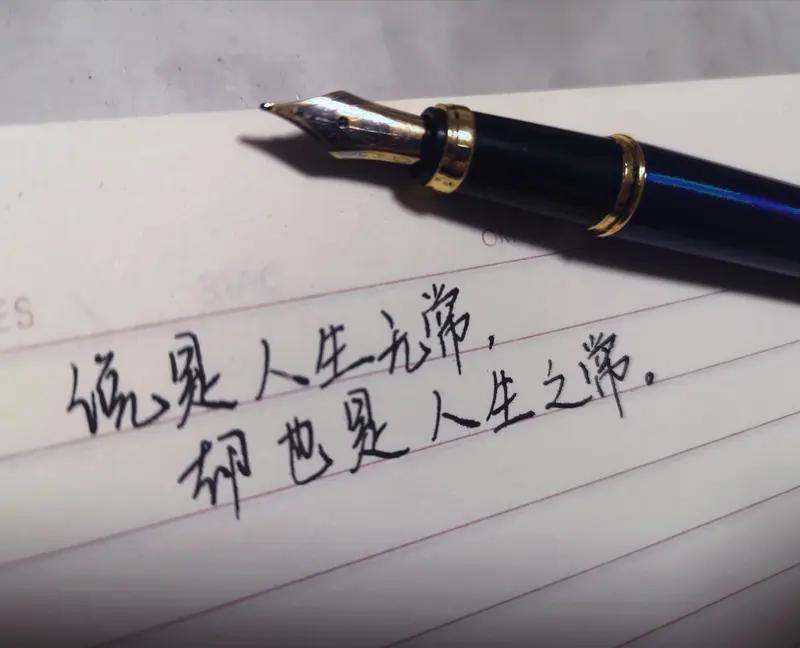 ES
说是人生无常，
却也是人生之常。